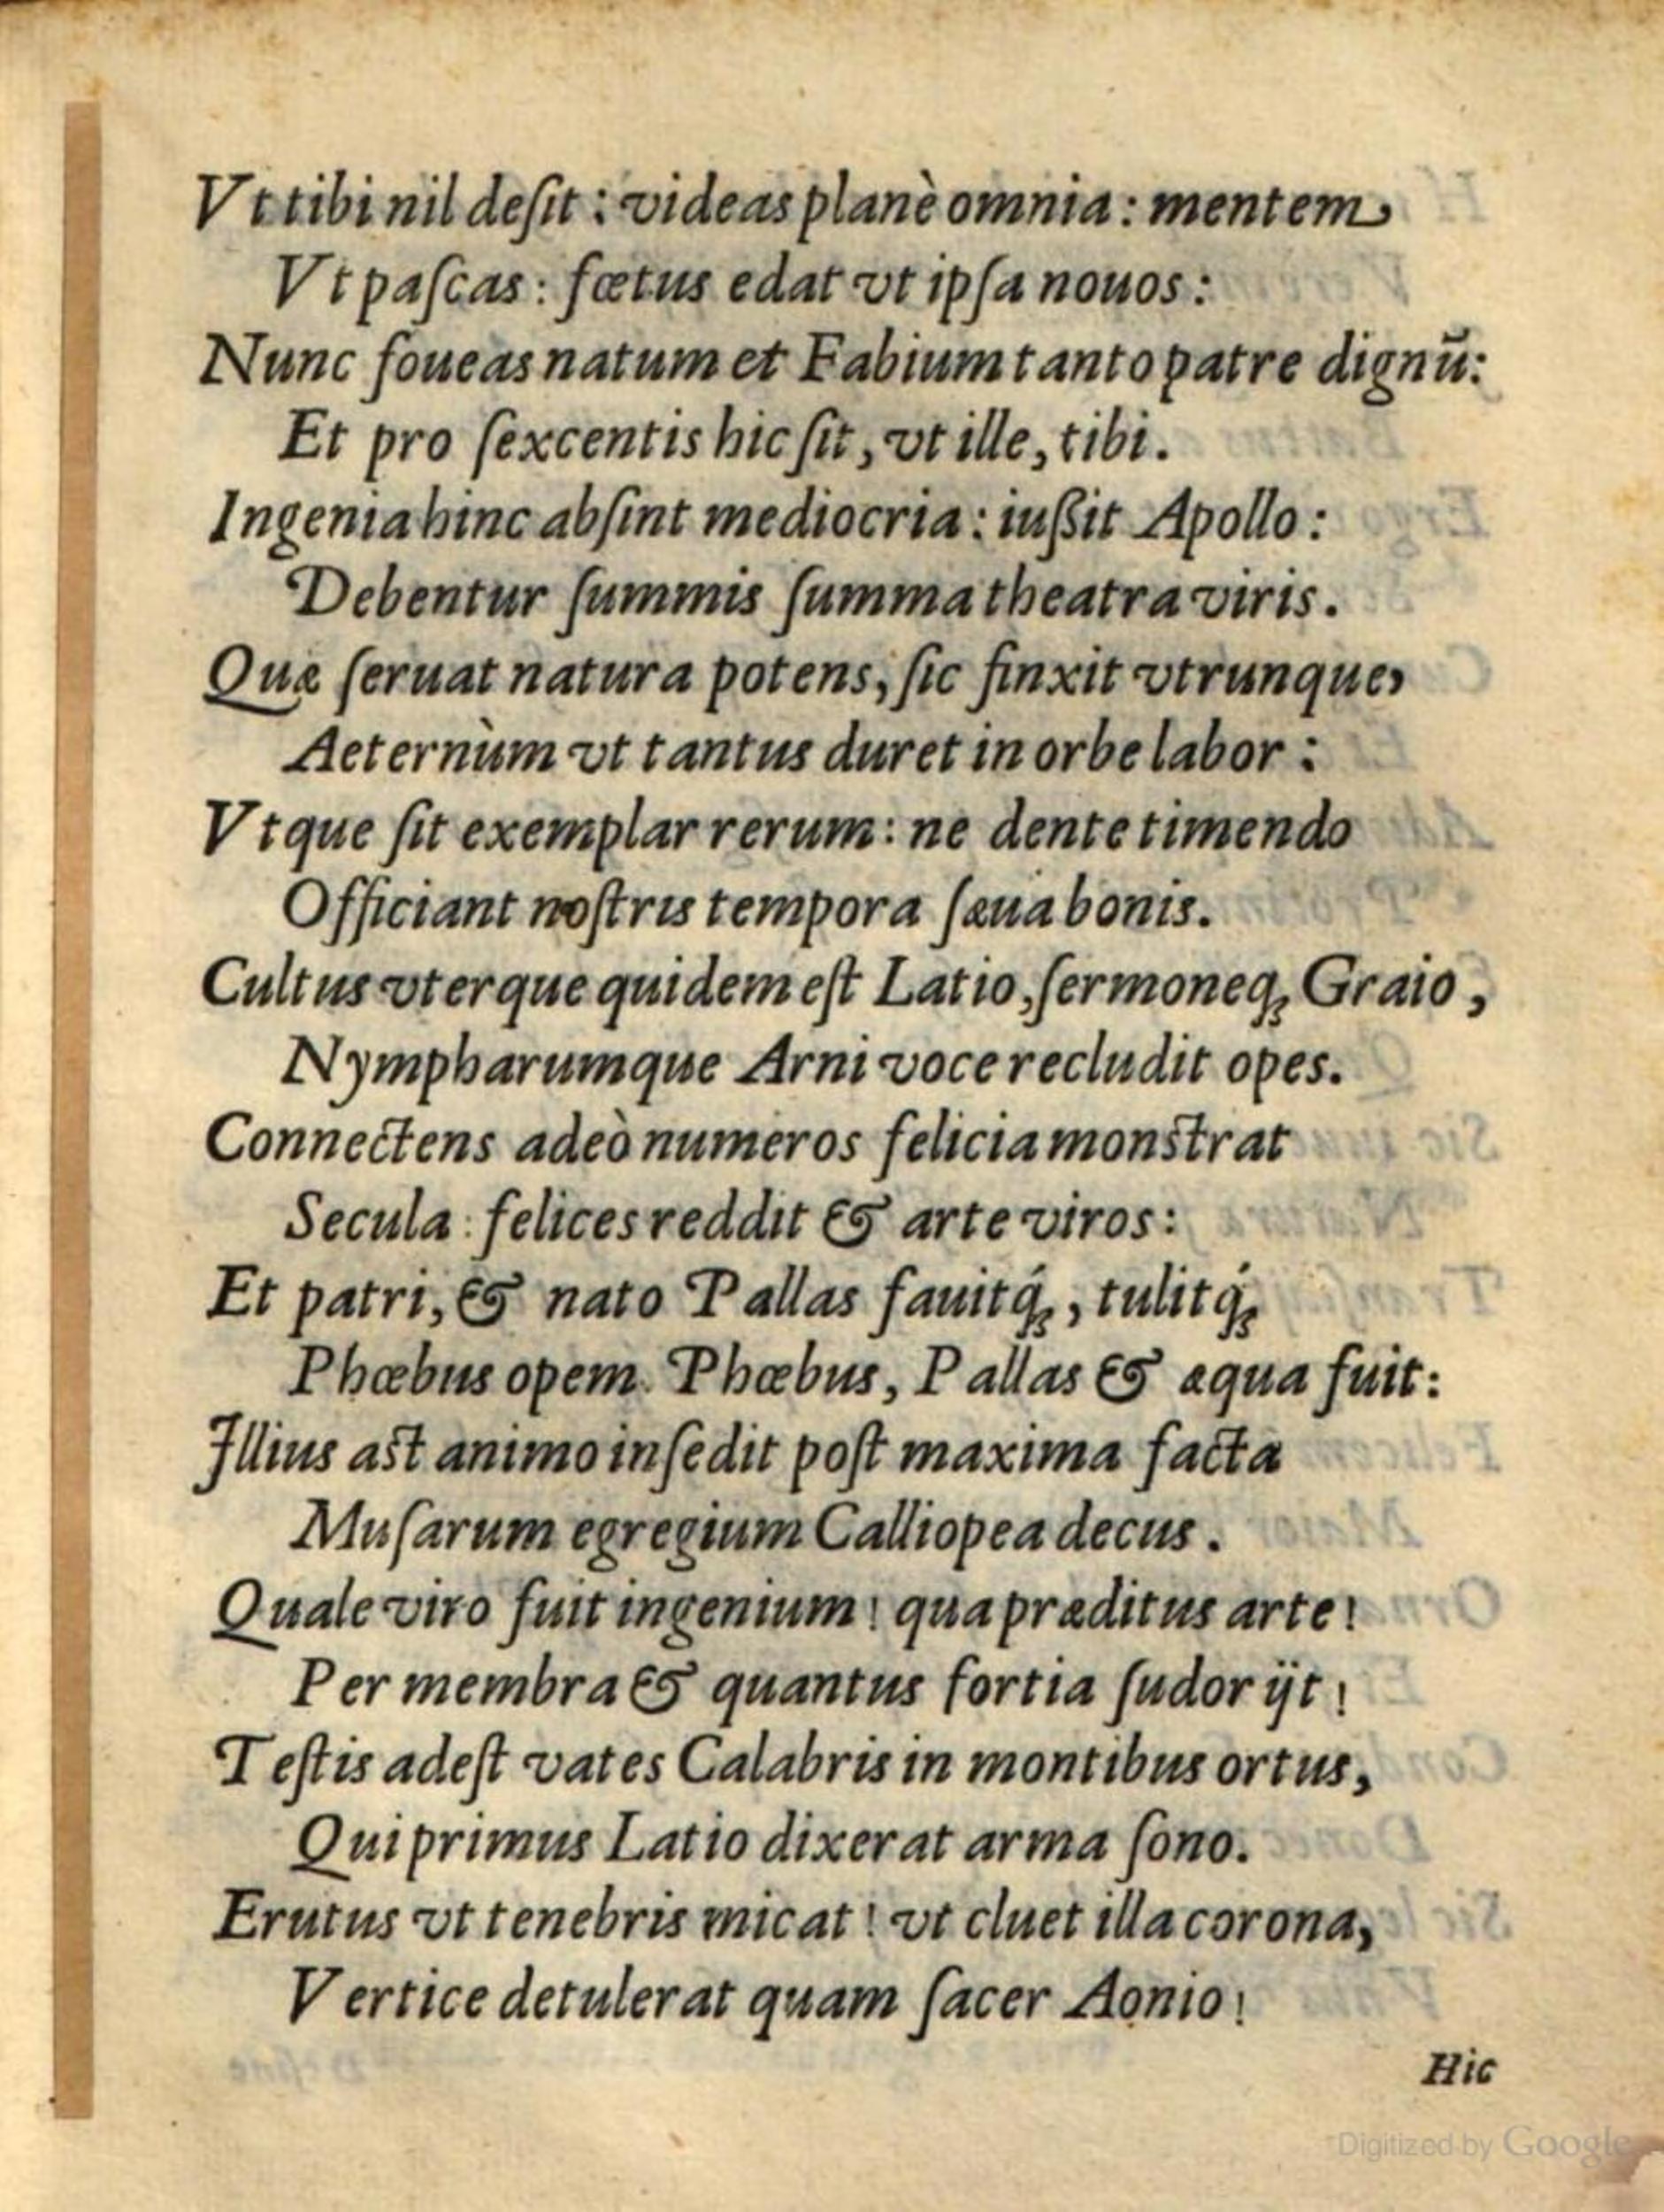 Vt tibi nil deſit : videas planè omnia : mentem
Vt paſcas : fœtus edat vt ipſa nouos :
Nunc foueas natum et Fabium tanto patre dignū:
Et pro ſexcentis hic ſit, vt ille, tibi.
Ingenia hinc abſint mediocria : iuſſit Apollo :
Debentur ſummis ſumma theatra viris.
Quæ ſeruat natura potens, ſic finxit vtrunque,
Aeternùm vt tantus duret in orbe labor :
Vtque ſit exemplar rerum : ne dente timendo
Officiant noſtris tempora ſæua bonis.
Cultus vterque quidem eſt Latio, ſermoneq; Graio,
Nympharumque Arni voce recludit opes.
Connectens adeò numeros felicia monſtrat
Secula : felices reddit & arte viros :
Et patri, & nato Pallas fauitq́;, tulitq́;
Phœbus opem. Phœbus, Pallas & æqua fuit :
Illius aſt animo inſedit poſt maxima facta
Muſarum egregium Calliopea decus.
Quale viro fuit ingenium! qua præditus arte!
Per membra & quantus fortia ſudor ijt!
Teſtis adeſt vates Calabris in montibus ortus,
Qui primus Latio dixerat arma ſono.
Erutus vt tenebris micat! vt cluet illa corona,
Vertice detulerat quam ſacer Aonio!
Hic
Digitized by Google